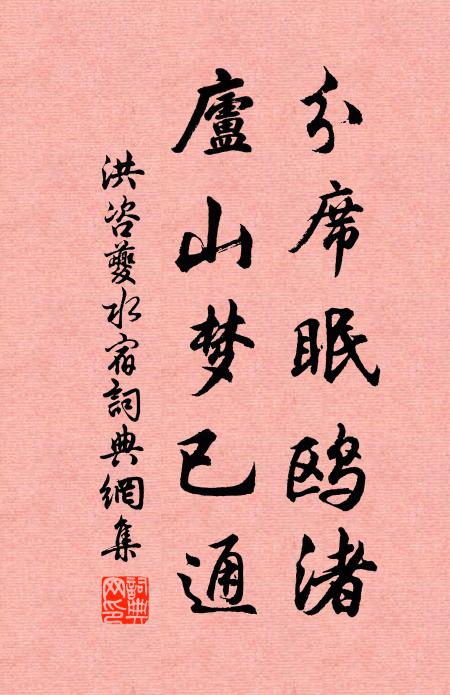 分席眠鸥渚
廬山梦已通
洪咨夔水宿詞典網集
詞典網印